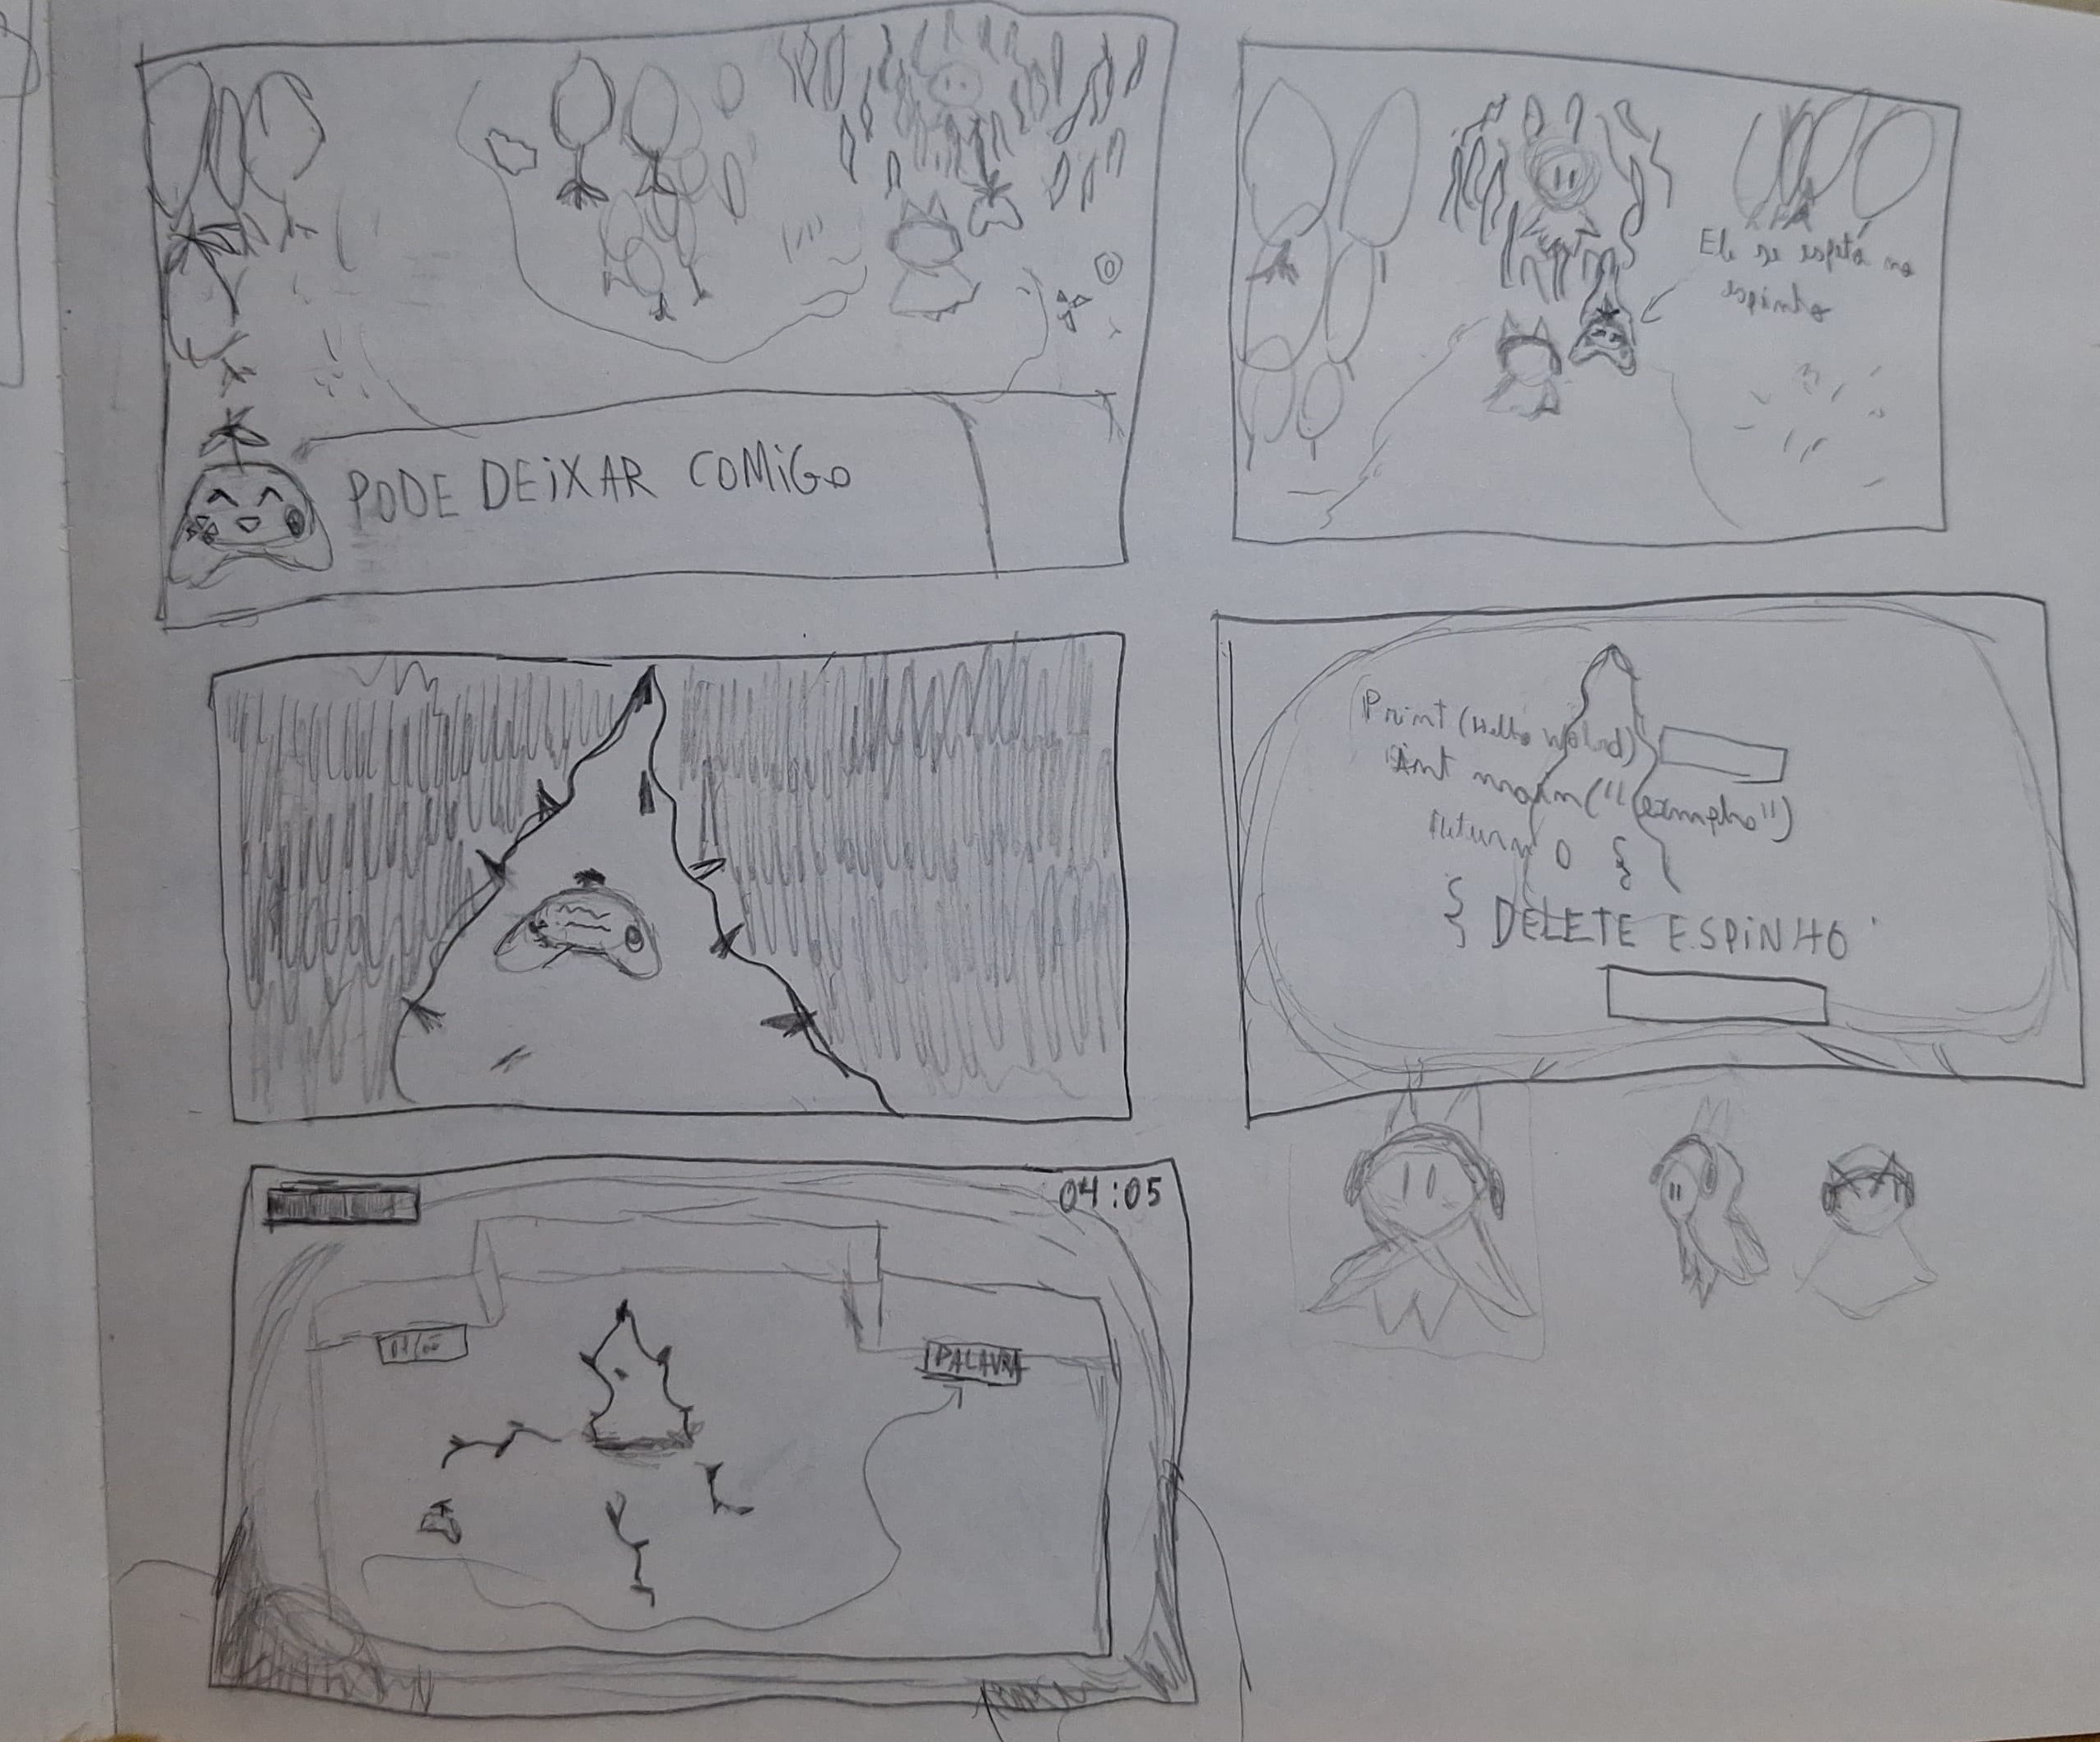 PODE DEIXAR COMIGO
El se espeta no
espinho
Print (Hello World)
int main("exemplo")
return 0 }
} DELETE ESPINHO
04:05
PALAVRA